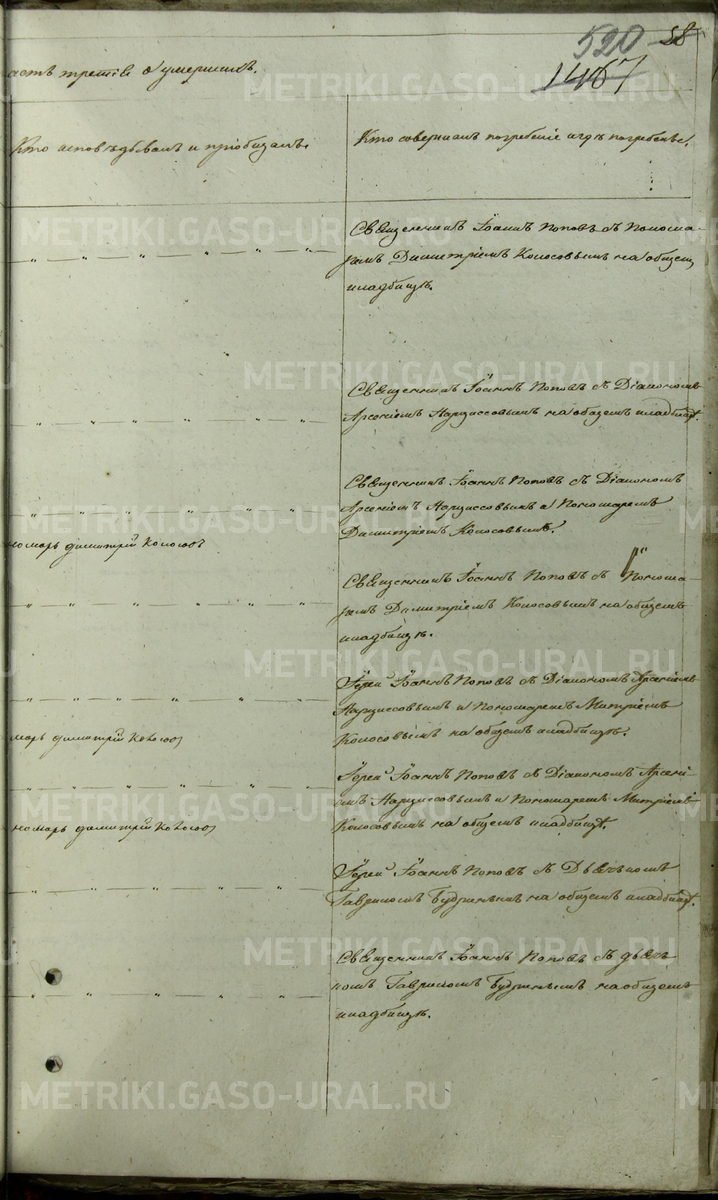 520 58
1467
асть третія о умершихъ.
Кто исповѣдывалъ и пріобщалъ.
Кто совершалъ погребеніе и гдѣ погребены.
Священникъ Іоаннъ Поповъ съ Понома-
ремъ Димитріемъ Колосовымъ на общем
кладбищѣ.
Священникъ Іоаннъ Поповъ съ Діакономъ
Арсеніемъ Нарциссовымъ на общемъ кладбищѣ.
Священникъ Іоаннъ Поповъ съ Діакономъ
Арсеніемъ Нарциссовымъ и Пономаремъ
Димитріемъ Колосовымъ.
номарь Димитрій Колосовъ
Священникъ Іоаннъ Поповъ съ Понома-
ремъ Димитріемъ Колосовымъ на общемъ
кладбищѣ.
Іерей Іоаннъ Поповъ съ Діакономъ Арсеніемъ
Нарциссовымъ и Пономаремъ Митріемъ
Колосовымъ на общемъ кладбищѣ.
марь Димитрій Колосовъ
Іерей Іоаннъ Поповъ съ Діакономъ Арсені-
емъ Нарциссовымъ и Пономаремъ Митріемъ
Колосовымъ на общемъ кладбищѣ.
номарь Димитрій Колосовъ
Іерей Іоаннъ Поповъ съ Дьячкомъ
Гавриломъ Будринымъ на общемъ кладбищѣ.
Священникъ Іоаннъ Поповъ съ дьяч-
комъ Гавриломъ Будринымъ на общемъ
кладбищѣ.
METRIKI.GASO-URAL.RU